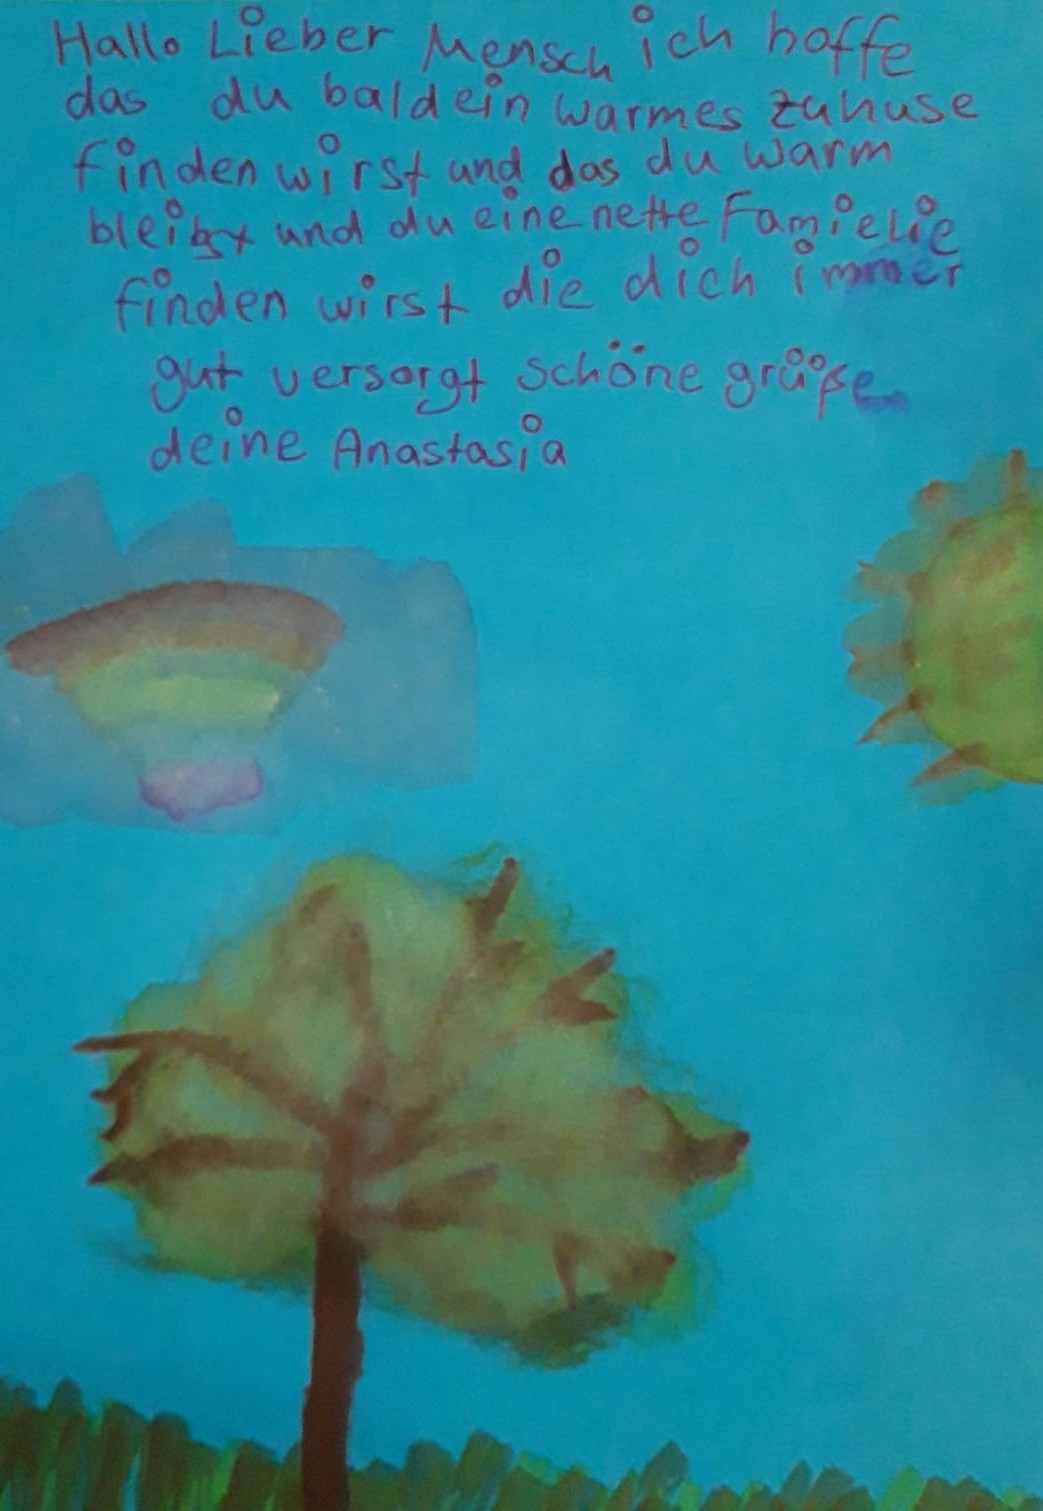 Hallo Lieber Mensch ich hoffe
das du bald ein warmes zuhuse
finden wirst und das du warm
bleibst und du eine nette Famielie
finden wirst die dich immer
gut versorgt schöne grüße
deine Anastasia